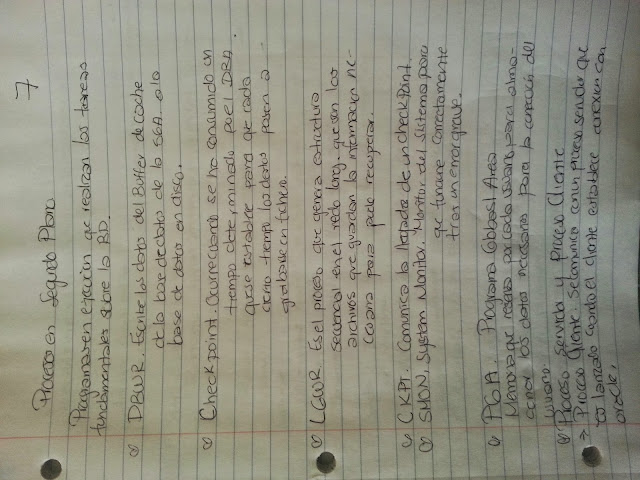 7
Proceso en Segundo Plano
Programas en ejecución que realizan las tareas
fundamentales sobre la BD.
DBWR. Escribe los datos del Buffer de caché
de la base de datos de la SGA a la
base de datos en disco.
Checkpoint. Ocurre cuando se ha consumido un
tiempo determinado por el DBA.
que se establece para que cada
cierto tiempo los datos pasen a
grabarse en fichero.
LGWR Es el proceso que genera estructura
secuencial en el redo long. que son los
archivos que guardan la información ne-
cesaria para poder recuperar.
CKPT. Comunica la llegada de un checkPoint.
SMON. System Monitor. Monitor del Sistema para
que funcione correctamente
tras un error grave.
PGA. Programa Global Area
Memoria que reserva por cada usuario para alma-
cenar los datos necesarios para la conexión del
usuario.
Proceso servidor y Proceso Cliente
→ Proceso Cliente. Se comunica con un proceso servidor que
es lanzado cuando el cliente establece conexión con
oracle.